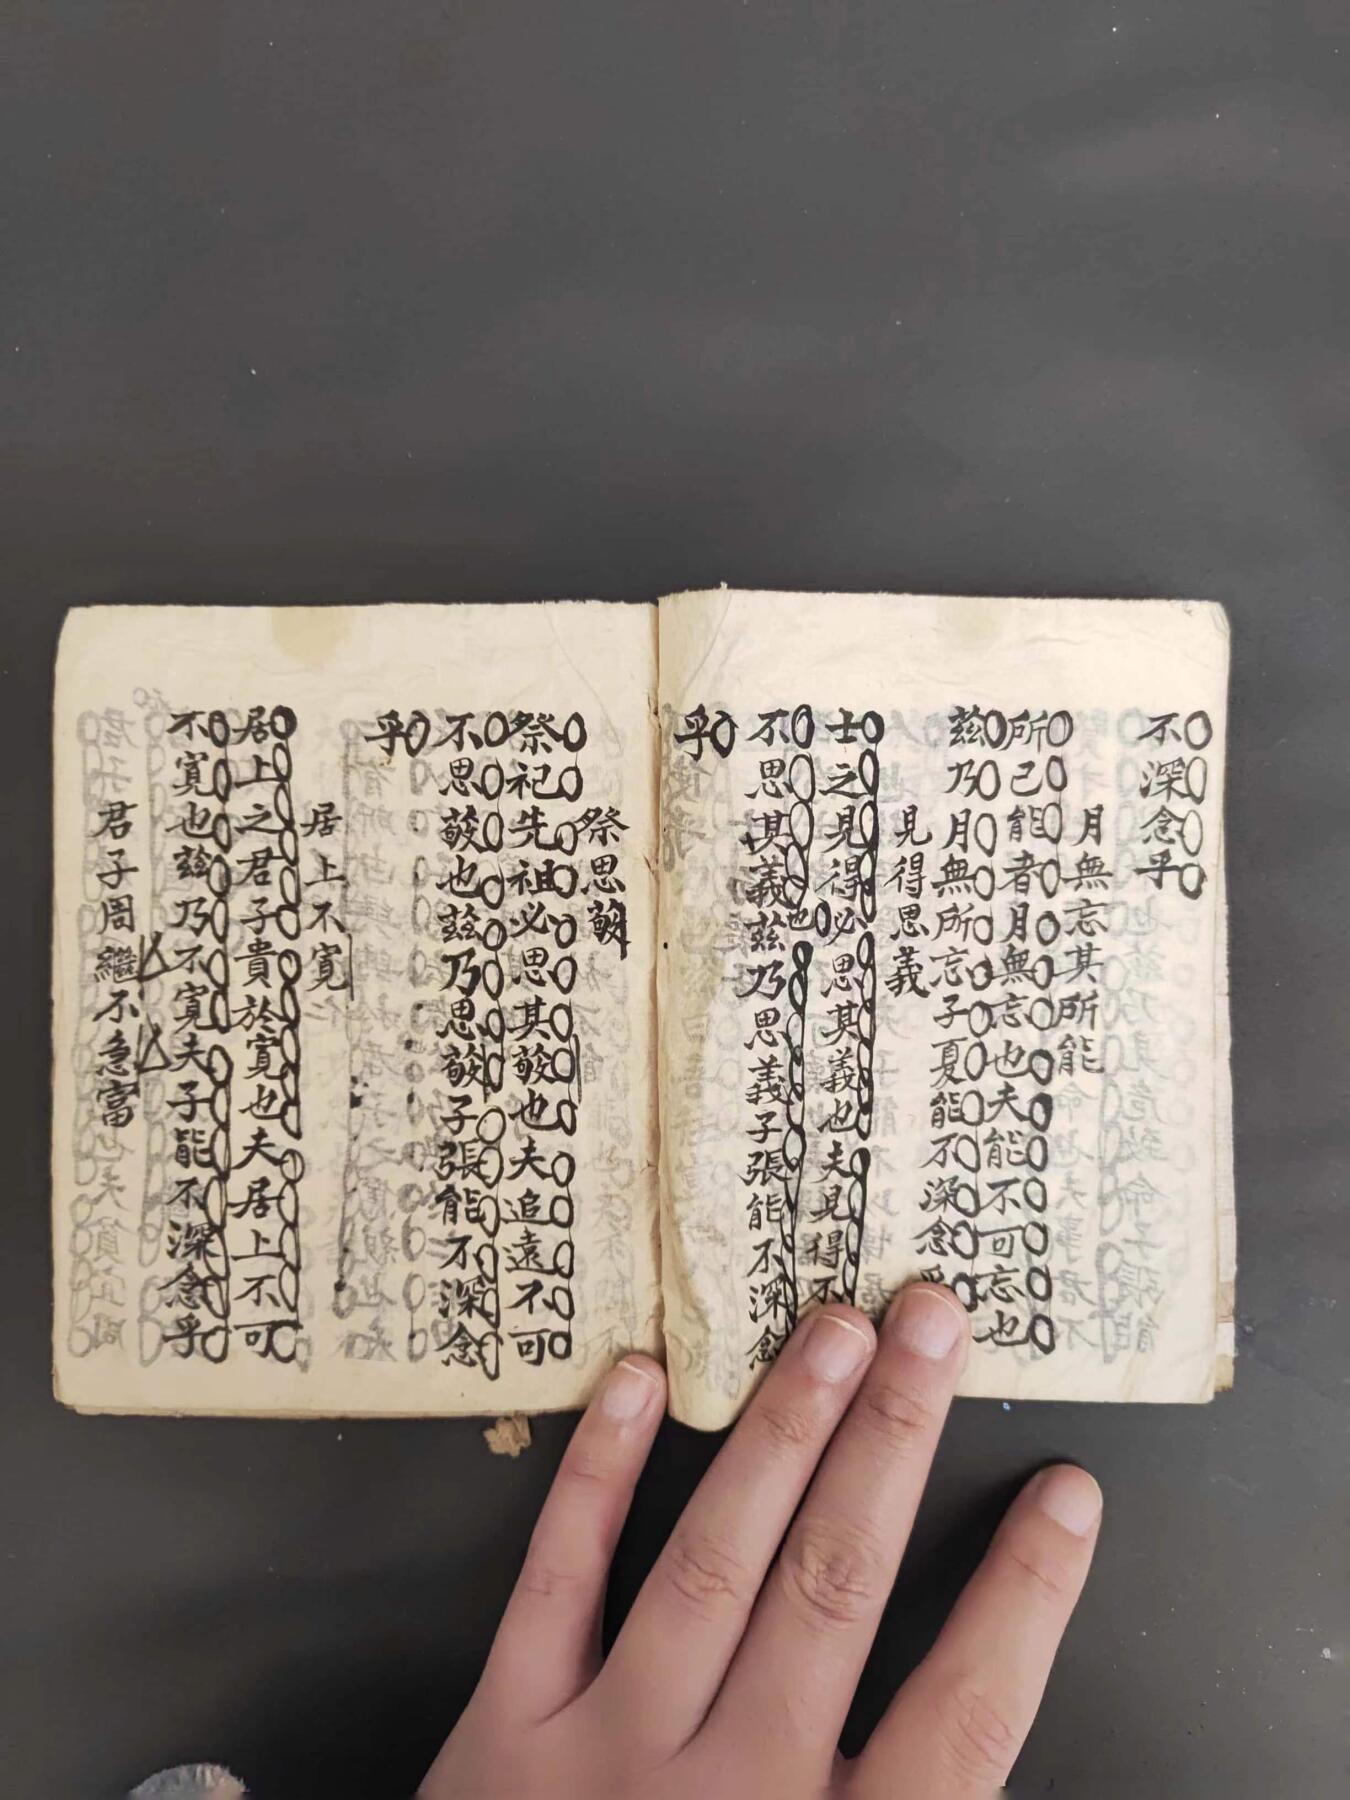 不深念乎
月無忘其所能
所已能者月無忘也夫能不可忘也
茲乃月無所忘子夏能不深念乎
見得思義
士之見得必思其義也夫見得不
不思其義也茲乃思義子張能不深念
乎
祭思敬
祭祀先祖必思其敬也夫追遠不可
不思敬也茲乃思敬子張能不深念
乎
居上不寬
居上之君子貴於寬也夫居上不可
不寬也茲乃不寬夫子能不深念乎
君子周繼不急富